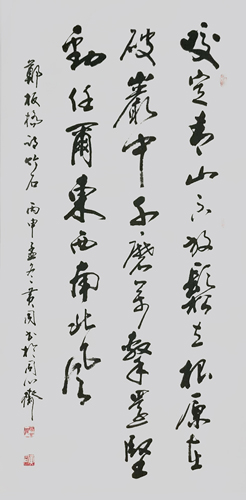 咬定青山不放鬆立根原在
破巖中千磨萬擊還堅
勁任爾東西南北風
鄭板橋詩竹石 丙申孟冬 黄 书於 心齋